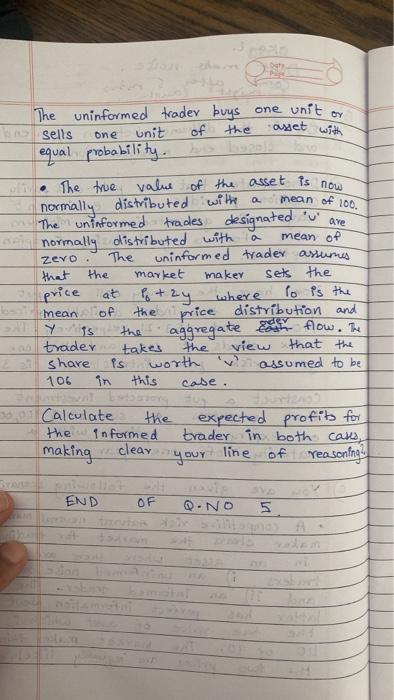 Date
Page
The uninformed trader buys one unit or
sells one unit of the asset with
equal probability.
• The true value of the asset is now
normally distributed with a mean of 100.
The uninformed trades designated 'u' are
normally distributed with a mean of
zero. The uninformed trader assumes
that the market maker sets the
price at P₀ + 2y where P₀ is the
mean of the price distribution and
Y is the aggregate order flow. The
trader takes the view that the
share is worth 'v' assumed to be
106 in this case.
Calculate the expected profits for
the informed trader in both cases,
making clear your line of reasoning?
END OF Q.NO 5